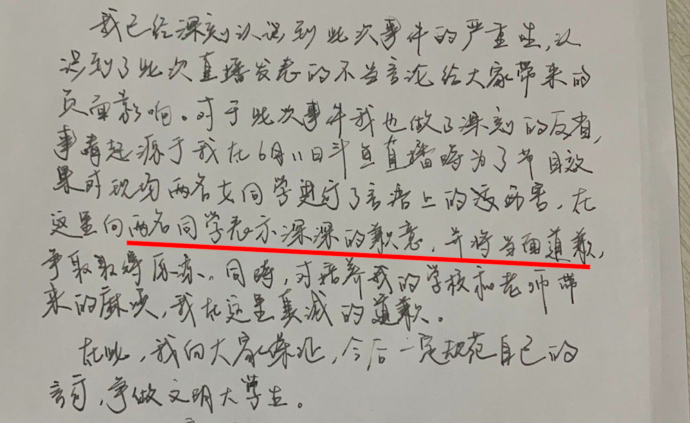 我已经深刻认识到此次事件的严重性,认
识到了此次直播发表的不当言论给大家带来的
负面影响。对于此次事件我也做了深刻的反省,
事情起源于我在6月11日斗鱼直播时为了节目效
果对现场两名女同学进行了言语上的伤害,在
这里向两名同学表示深深的歉意,并将当面道歉,
争取取得原谅。同时,对培养我的学校和老师带
来的麻烦,我在这里真诚的道歉。
在此,我向大家保证,今后一定规范自己的
言行,争做文明大学生。